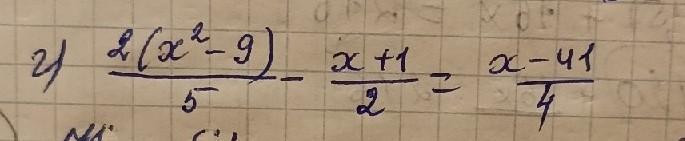 г) \frac{2(x^2-9)}{5} - \frac{x+1}{2} = \frac{x-41}{4}